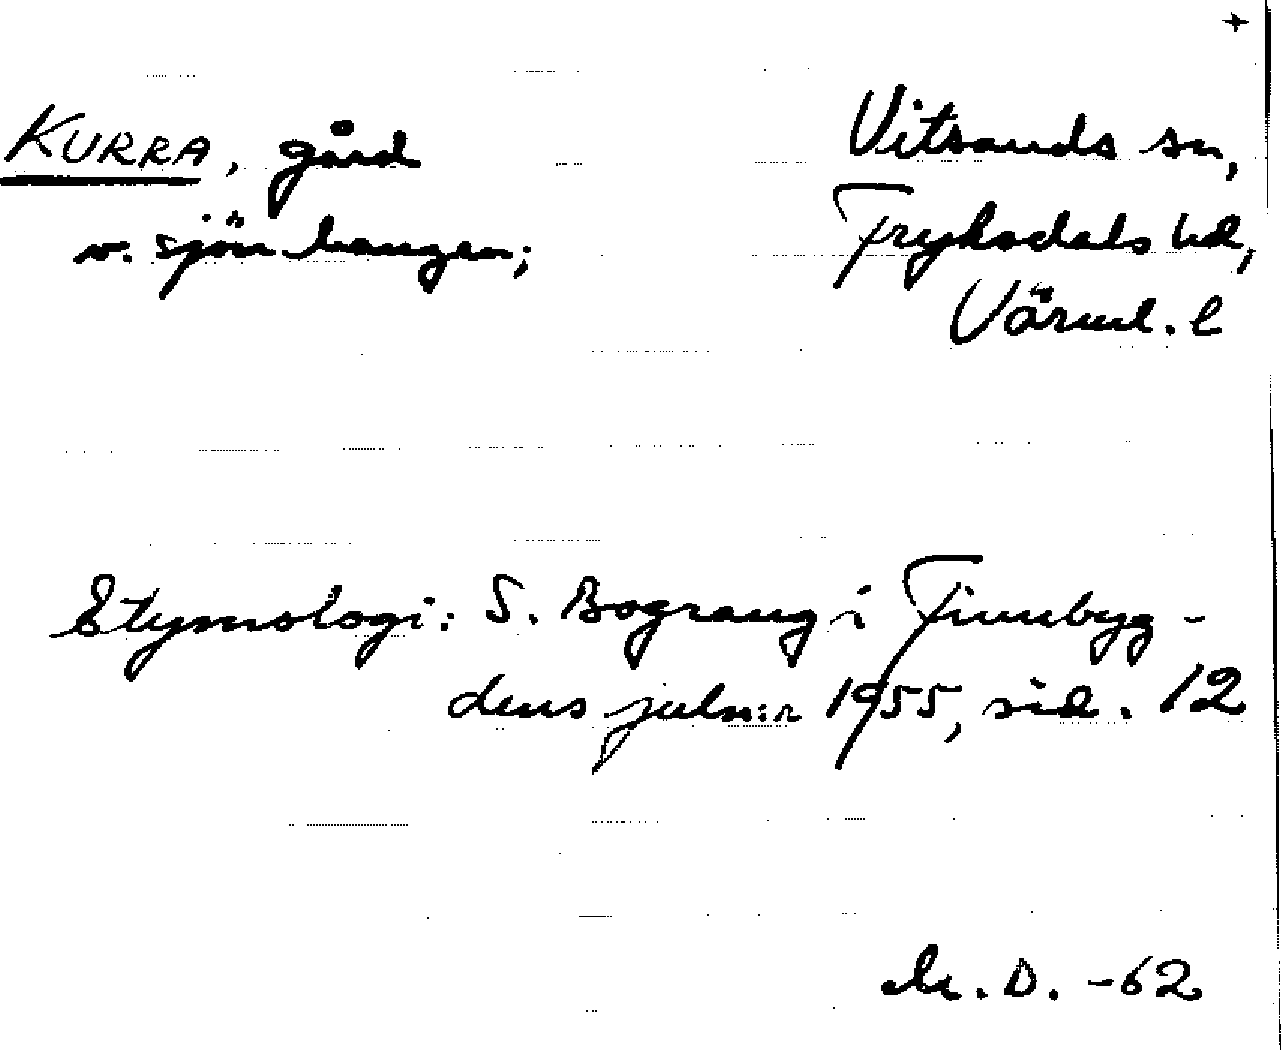 +
KURRA, gård
v. sjön Langen;
Vitsands sn,
Fryksdals hd,
Värml. l
Etymologi: S. Bograng i Finnbyg-
dens juln:r 1955, sid. 12
D. -62